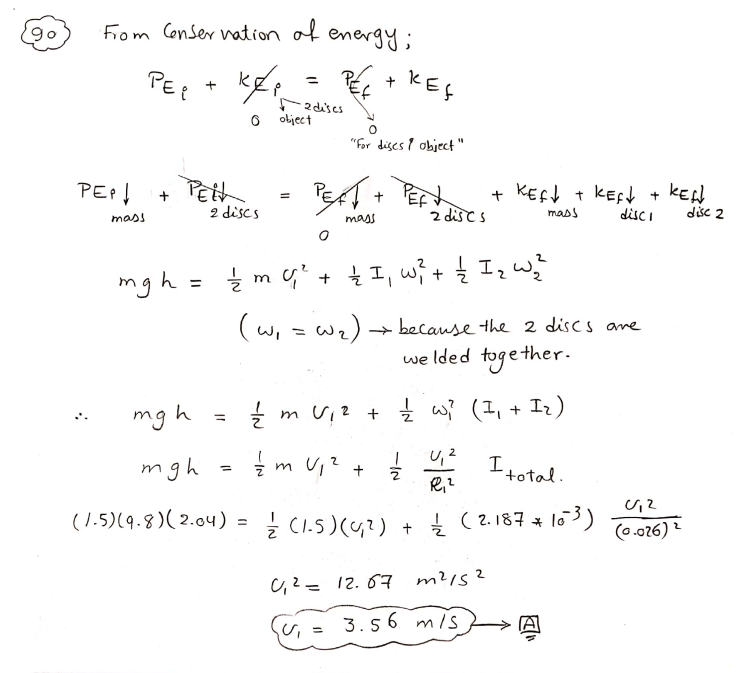 90 From Conservation of energy;
PEi + KEi = PEf + KEf
0 object 2 discs 0
"For discs & object"
PEi↓ + PEi↓ = PEf↓ + PEf↓ + KEf↓ + KEf↓ + KEf↓
mass 2 discs mass 2 discs mass disc 1 disc 2
0
mgh = 1/2 m v₁² + 1/2 I₁ ω₁² + 1/2 I₂ ω₂²
(ω₁ = ω₂) → because the 2 discs are
welded together.
∴ mgh = 1/2 m v₁² + 1/2 ω₁² (I₁ + I₂)
mgh = 1/2 m v₁² + 1/2 v₁²/R₁² I total.
(1.5)(9.8)(2.04) = 1/2 (1.5)(v₁²) + 1/2 (2.187 * 10⁻³) v₁²/(0.026)²
v₁² = 12.67 m²/s²
v₁ = 3.56 m/s → A